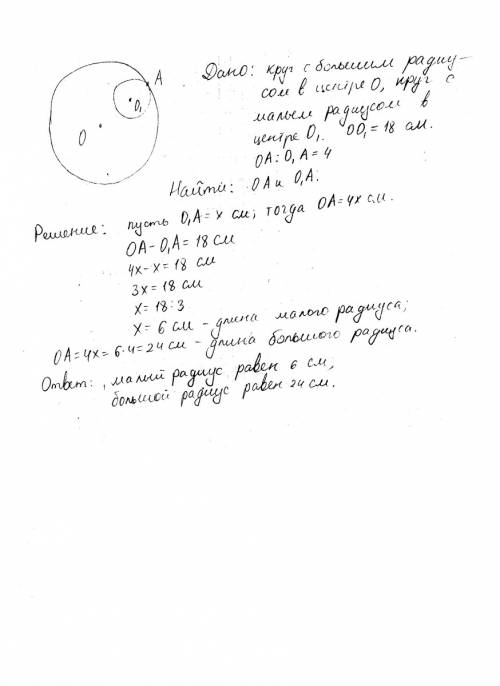 A
O₁
O
Дано: круг с большим радиу-
сом в центре O, круг с
малым радиусом в
центре O₁. OO₁ = 18 см.
OA : O₁A = 4
Найти: OA и O₁A.
Решение: пусть O₁A = x см; тогда OA = 4x см.
OA - O₁A = 18 см
4x - x = 18 см
3x = 18 см
x = 18 : 3
x = 6 см - длина малого радиуса;
OA = 4x = 6·4 = 24 см - длина большого радиуса.
Ответ: , малый радиус равен 6 см;
большой радиус равен 24 см.